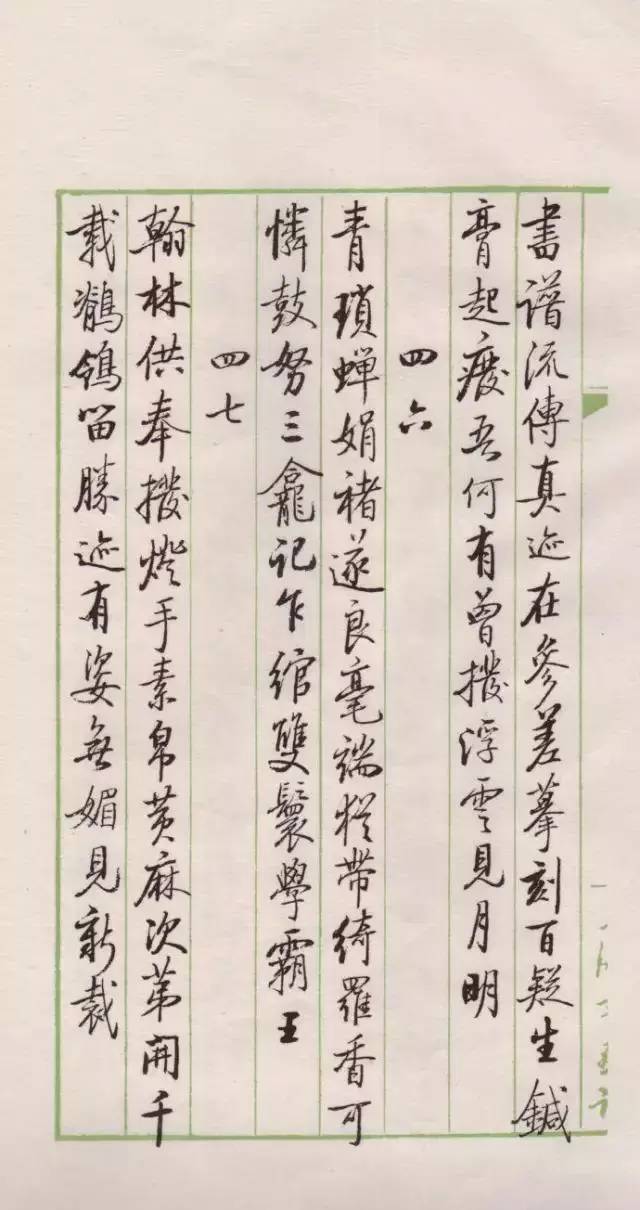 書譜流傳真迹在參差摹刻百疑生鍼
膏起廢吾何有曾撥浮雲見月明
四六
青瑣蟬娟褚遂良毫端猶帶綺羅香可
憐鼓努三龕記乍綰雙鬟學霸王
四七
翰林供奉撥燈手素帛黃麻次第開千
載鶺鴒留勝迹有姿無媚見新裁